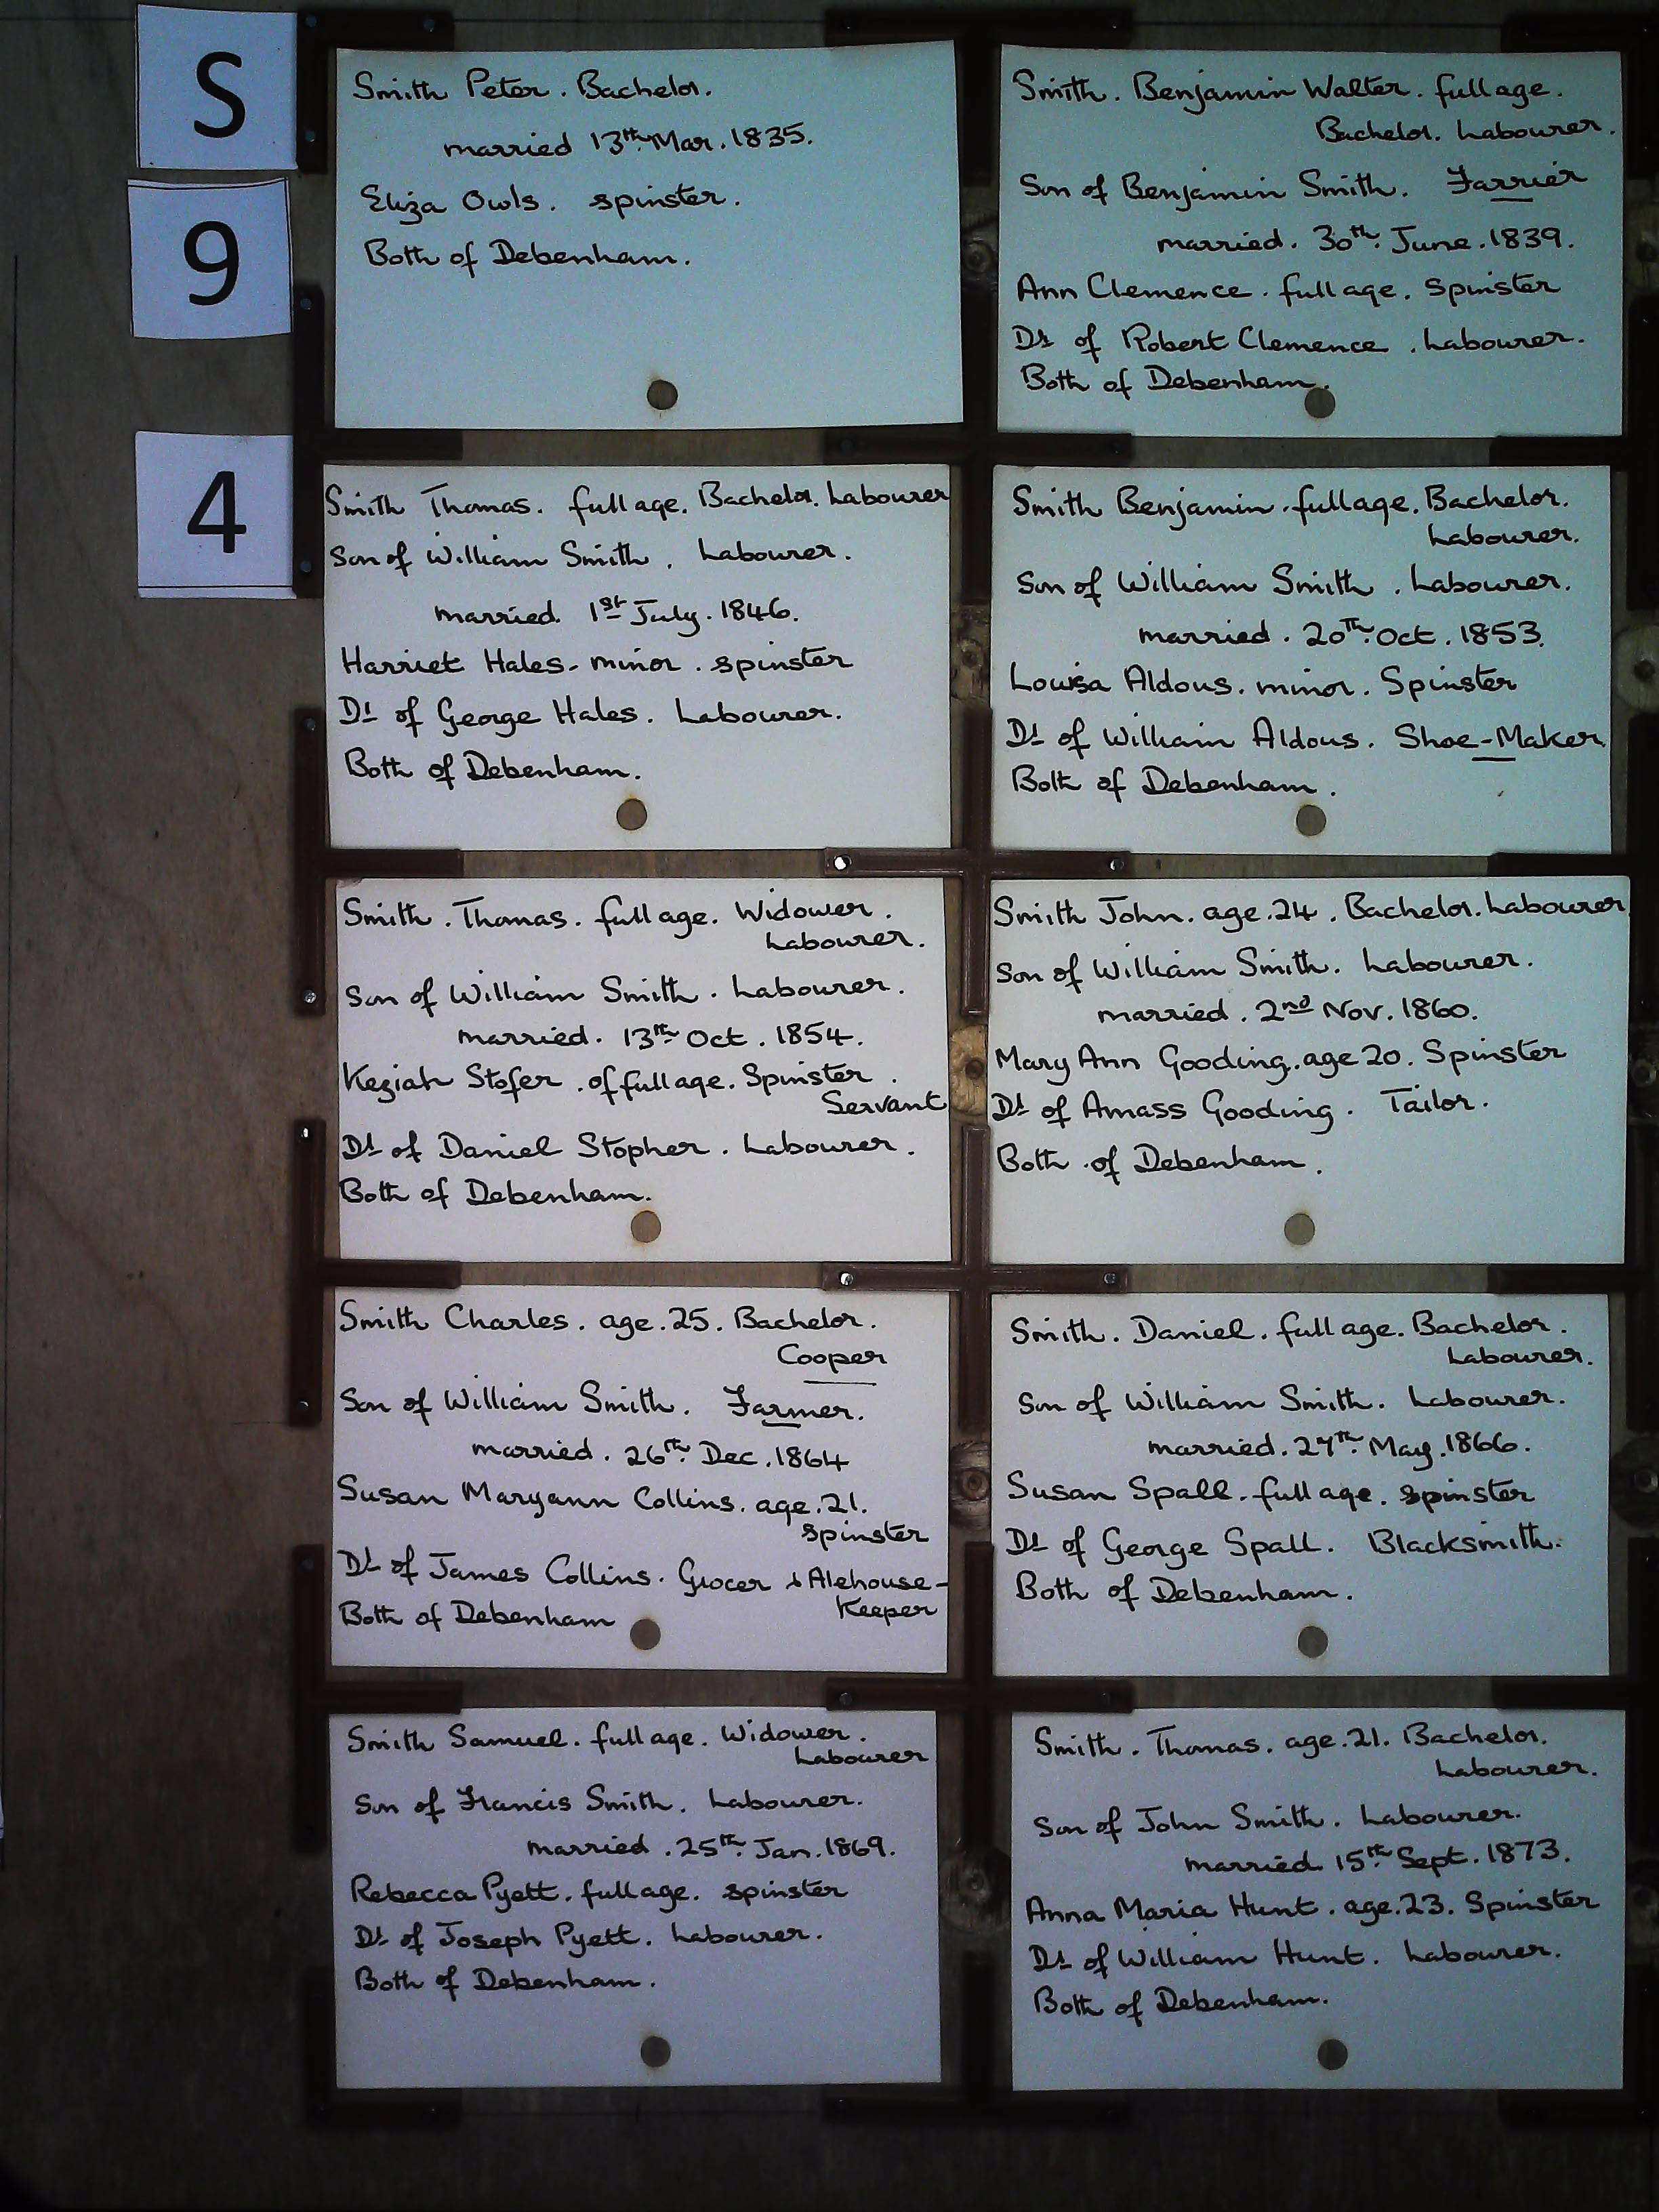 S
9
4
Smith Peter. Bachelor.
married 13th Mar. 1835.
Eliza Owls. spinster.
Both of Debenham.
Smith. Benjamin Walter. full age.
Bachelor. Labourer.
Son of Benjamin Smith. Farrier
married. 30th. June. 1839.
Ann Clemence. full age. Spinster
Dr of Robert Clemence. Labourer.
Both of Debenham.
Smith Thomas. full age. Bachelor. Labourer
Son of William Smith. Labourer.
married. 1st July. 1846.
Harriet Hales - minor. spinster
Dr of George Hales. Labourer.
Both of Debenham.
Smith Benjamin. full age. Bachelor.
Labourer.
Son of William Smith. Labourer.
married. 20th. Oct. 1853.
Louisa Aldous. minor. Spinster
Dr of William Aldous. Shoe-Maker.
Both of Debenham.
Smith. Thomas. full age. Widower.
Labourer.
Son of William Smith. Labourer.
married. 13th Oct. 1854.
Keziah Stofer. of full age. Spinster.
Servant
Dr of Daniel Stopher. Labourer.
Both of Debenham.
Smith John. age. 24. Bachelor. Labourer.
Son of William Smith. Labourer.
married. 2nd Nov. 1860.
Mary Ann Gooding. age 20. Spinster
Dr of Amass Gooding. Tailor.
Both of Debenham.
Smith Charles. age. 25. Bachelor.
Cooper
Son of William Smith. Farmer.
married. 26th. Dec. 1864
Susan Maryann Collins. age. 21.
Spinster
Dr of James Collins. Grocer & Alehouse-
Keeper
Both of Debenham
Smith. Daniel. full age. Bachelor.
Labourer.
Son of William Smith. Labourer.
married. 27th. May. 1866.
Susan Spall. full age. spinster
Dr of George Spall. Blacksmith.
Both of Debenham.
Smith Samuel. full age. Widower.
Labourer
Son of Francis Smith. Labourer.
married. 25th. Jan. 1869.
Rebecca Pyett. full age. spinster
Dr of Joseph Pyett. Labourer.
Both of Debenham.
Smith. Thomas. age. 21. Bachelor.
Labourer.
Son of John Smith. Labourer.
married 15th. Sept. 1873.
Anna Maria Hunt. age. 23. Spinster
Dr of William Hunt. Labourer.
Both of Debenham.